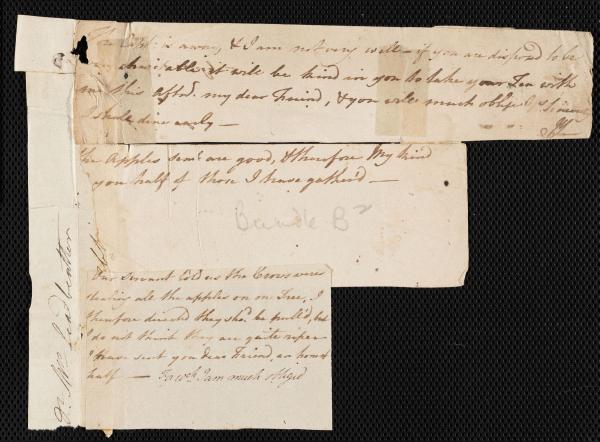 The Capt: is away, & I am not very well - if you are disposed to be
so charitable it will be kind in you to take your Tea with
me this aftn: my dear Friend, & you will much oblige yr sincere
I shall dine early -
The Apples seml are good, & therefore My kind
you half of those I have gather'd -
Bundle B2
Our Servant told us the Crows were
stealing all the apples on one Tree, I
therefore directed they shd. be pull'd, but
I do not think they are quite ripe
I have sent you dear Friend, an honest
half - For wch I am much obliged
Mrs Leadbeater